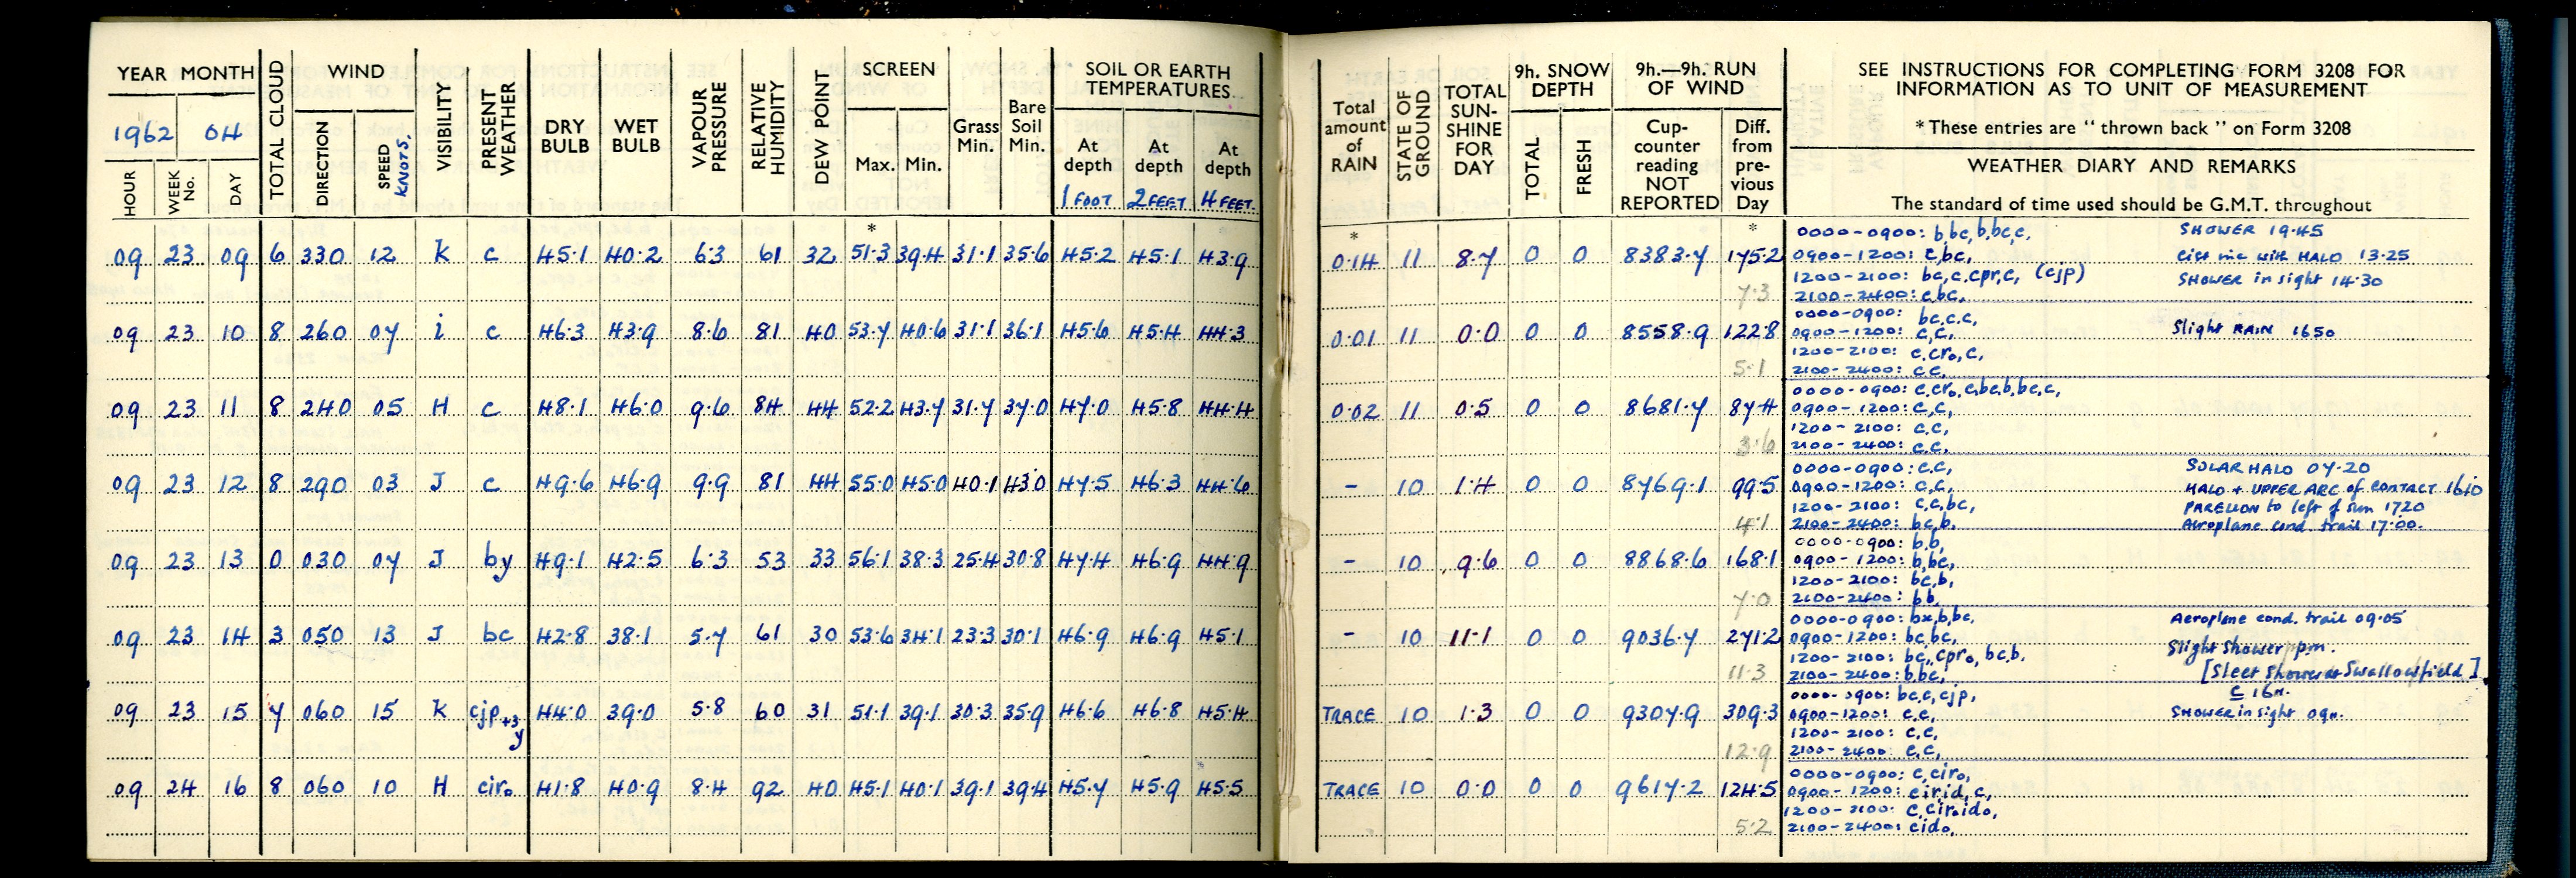 YEAR MONTH
1962 04
HOUR WEEK No. DAY TOTAL CLOUD WIND DIRECTION SPEED KNOTS. VISIBILITY PRESENT WEATHER DRY BULB WET BULB VAPOUR PRESSURE RELATIVE HUMIDITY DEW POINT SCREEN Max. Min. Grass Min. Bare Soil Min. SOIL OR EARTH TEMPERATURES At depth 1 FOOT At depth 2 FEET At depth 4 FEET.
*
09 23 09 6 330 12 K c 45.1 40.2 6.3 61 32 51.3 39.4 31.1 35.6 45.2 45.1 43.9
09 23 10 8 260 07 i c 46.3 43.9 8.6 81 40 53.7 40.6 31.1 36.1 45.6 45.4 44.3
09 23 11 8 240 05 H c 48.1 46.0 9.6 84 44 52.2 43.7 31.7 37.0 47.0 45.8 44.4
09 23 12 8 290 03 J c 49.6 46.9 9.9 81 44 55.0 45.0 40.1 43.0 47.5 46.3 44.6
09 23 13 0 030 07 J by 49.1 42.5 6.3 53 33 56.1 38.3 25.4 30.8 47.4 46.9 44.9
09 23 14 3 050 13 J bc 42.8 38.1 5.7 61 30 53.6 34.1 23.3 30.1 46.9 46.9 45.1
09 23 15 7 060 15 K cjp+3y 44.0 39.0 5.8 60 31 51.1 39.1 30.3 35.9 46.6 46.8 45.4
09 24 16 8 060 10 H ciro 41.8 40.9 8.4 92 40 45.1 40.1 39.1 39.4 45.7 45.9 45.5
Total amount of RAIN STATE OF GROUND TOTAL SUN-SHINE FOR DAY 9h. SNOW DEPTH TOTAL FRESH 9h.—9h. RUN OF WIND Cup-counter reading NOT REPORTED Diff. from pre-vious Day
SEE INSTRUCTIONS FOR COMPLETING FORM 3208 FOR
INFORMATION AS TO UNIT OF MEASUREMENT
* These entries are “ thrown back ” on Form 3208
WEATHER DIARY AND REMARKS
The standard of time used should be G.M.T. throughout
* *
0000-0900: b,bc,b,bc,c, SHOWER 19.45
0.14 11 8.7 0 0 8383.7 175.2 0900-1200: c,bc, Cist nic with HALO 13.25
1200-2100: bc,c.cpr,c, (cjp) SHOWER in sight 14.30
7.3 2100-2400: c,bc,
0000-0900: bc,c.c,
0.01 11 0.0 0 0 8558.9 122.8 0900-1200: c,c, Slight RAIN 1650
1200-2100: c.cro,c,
5.1 2100-2400: c.c,
0000-0900: c.cro,c,bc,b,bc,c,
0.02 11 0.5 0 0 8681.7 87.4 0900-1200: c,c,
1200-2100: c.c,
3.6 2100-2400: c.c,
0000-0900: c.c, SOLAR HALO 07.20
- 10 1.4 0 0 8769.1 99.5 0900-1200: c,c, HALO + UPPER ARC of CONTACT 1610
1200-2100: c,c,bc, PARELION to left of sun 1720
4.1 2100-2400: bc,b, Aeroplane cond. trail 17.00.
0000-0900: b.b,
- 10 9.6 0 0 8868.6 168.1 0900-1200: b,bc,
1200-2100: bc,b,
7.0 2100-2400: bb,
0000-0900: bx,b,bc, Aeroplane cond. trail 09.05
- 10 11.1 0 0 9036.7 271.2 0900-1200: bc,bc,
1200-2100: bc,cpro, bc,b. Slight Shower pm.
11.3 2100-2400: b,bc, [Sleet Shower at Swallowfield]
0000-0900: bc,c,cjp, C 16H.
TRACE 10 1.3 0 0 9307.9 309.3 0900-1200: c.c, SHOWER in sight 09H.
1200-2100: c,c,
12.9 2100-2400: c,c,
0000-0900: c,ciro,
TRACE 10 0.0 0 0 9617.2 124.5 0900-1200: cirid,c,
1200-2100: c,ciroido,
5.2 2100-2400: cido,